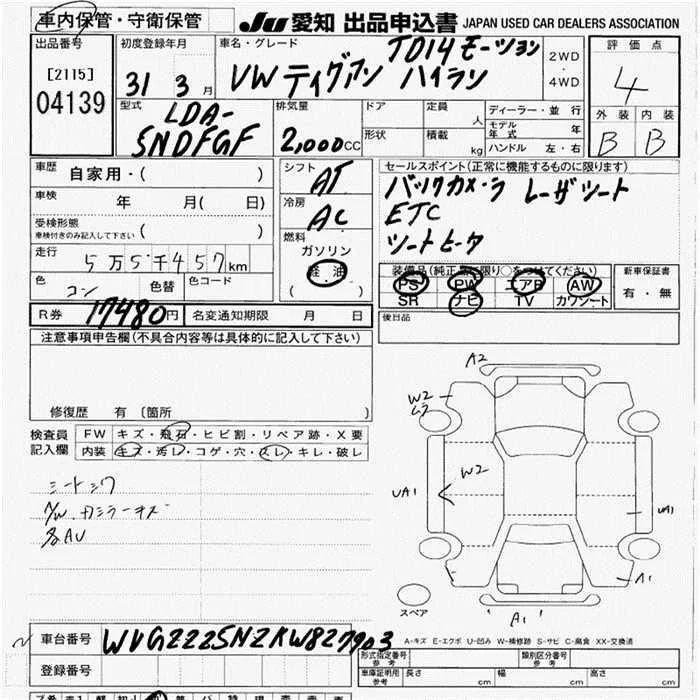 車内保管・守衛保管
JU 愛知 出品申込書 JAPAN USED CAR DEALERS ASSOCIATION
出品番号
[2115]
04139
初度登録年月
31 3 月
車名・グレード
TDI4モーション
VW ティグアン ハイライン
2WD
・
4WD
評価点
4
外装 内装
B B
型式
LDA-
5NDFGF
排気量
2,000CC
ドア
形状
定員 人
積載 kg
ディーラー・並行
モデル年式 年
ハンドル 左・右
車歴 自家用・( )
車検 年 月( 日)
受検形態
車検付きのみ記入して下さい ( )
走行
5万5千457km
色
コン
色替
色コード
シフト
AT
冷房
AC
燃料
ガソリン
軽油
( )
セールスポイント(正常に機能するものに限ります)
バックカメラ レーザシート
ETC
シートヒータ
装備品(純正品に限り○をつけてください)
PS PW エアB AW
SR ナビ TV カワシート
新車保証書
有・無
R券 17480円
名変通知期限 月 日
後日品
注意事項申告欄(不具合内容等は具体的に記入して下さい)
修復歴 有 〔箇所 〕
検査員
記入欄
FW キズ・飛石・ヒビ割・リペア跡・X要
内装 キズ・汚レ・コゲ・穴・スレ・キレ・破レ
シートシワ
A/W
各AU
A2
W2
W2
UA1
UA1
A1
A1
スペア
A-キズ E-エクボ U-凹み W-補修跡 S-サビ C-腐食 XX-交換済
車台番号 WVGZZZ5NZKW827903
登録番号
型式指定番号
参考
類別区分番号
参考
車庫証明用
参考
長さ cm 幅 cm 高さ cm